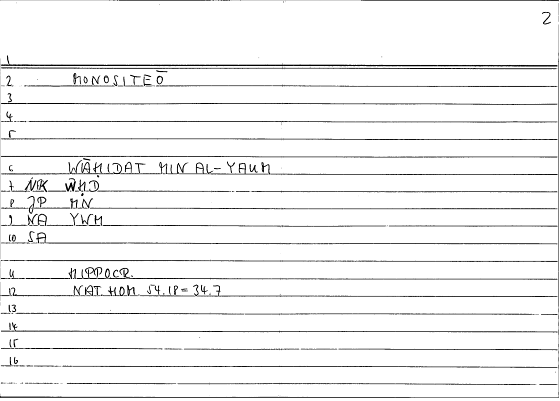 2
1
2 MONOSITEŌ
3
4
5
6 WĀḤIDAT MIN AL-YAUM
7 NK WḤD
8 JP MN
9 NA YWM
10 SA
11 HIPPOCR.
12 NAT. HOM. 54.18 = 34.7
13
14
15
16